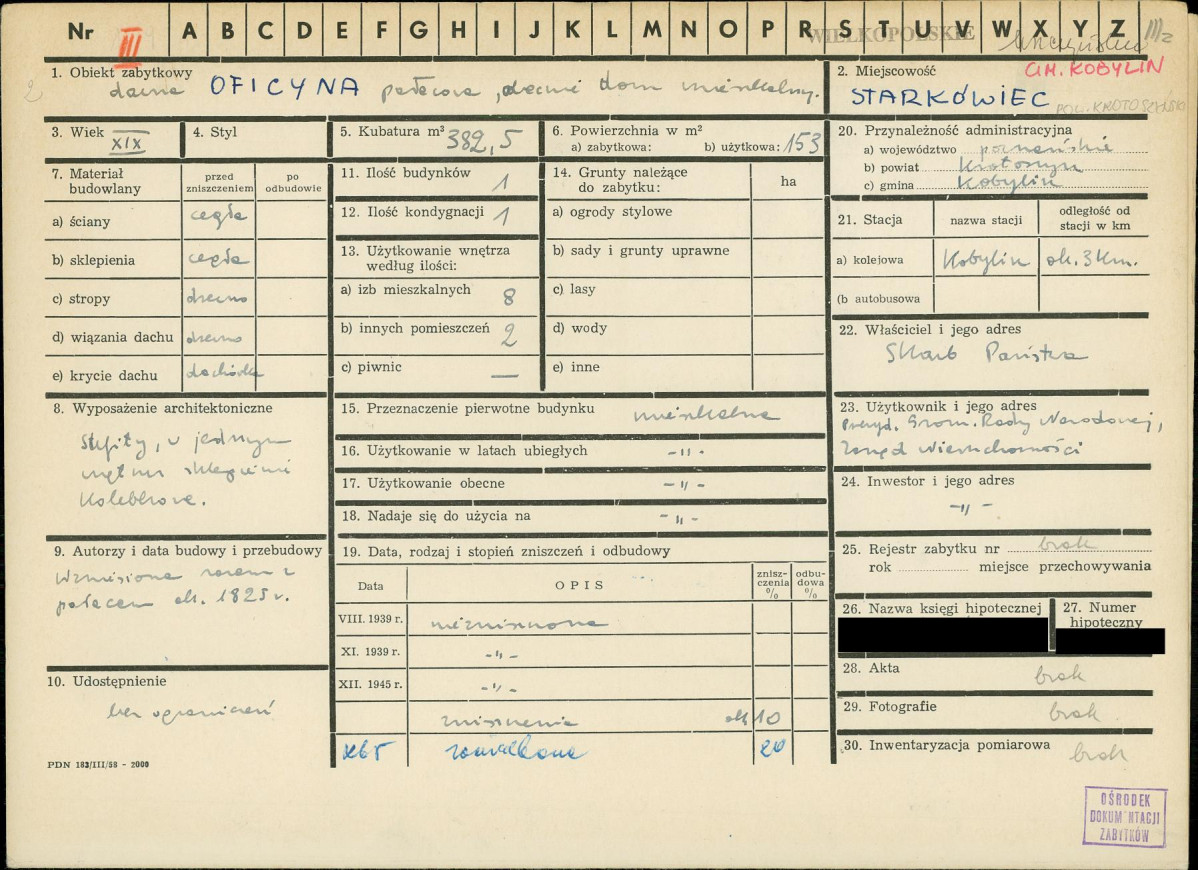 Nr III A B C D E F G H I J K L M N O P R S T U V W X Y Z III/2
WIELKOPOLSKIE
1. Obiekt zabytkowy
dawna OFICYNA pałacowa, obecnie dom mieszkalny.
2. Miejscowość
GM. KOBYLIN
STARKÓWIEC
POW. KROTOSZYŃSKI
3. Wiek
XIX
4. Styl
5. Kubatura m³ 382,5
6. Powierzchnia w m²
a) zabytkowa: b) użytkowa: 153
20. Przynależność administracyjna
a) województwo poznańskie
b) powiat Krotoszyn
c) gmina Kobylin
7. Materiał budowlany
przed zniszczeniem
po odbudowie
a) ściany cegła
b) sklepienia cegła
c) stropy drewno
d) wiązania dachu drewno
e) krycie dachu dachówka
11. Ilość budynków 1
12. Ilość kondygnacji 1
13. Użytkowanie wnętrza
według ilości:
a) izb mieszkalnych 8
b) innych pomieszczeń 2
c) piwnic —
14. Grunty należące
do zabytku:
ha
a) ogrody stylowe
b) sady i grunty uprawne
c) lasy
d) wody
e) inne
21. Stacja
nazwa stacji
odległość od
stacji w km
a) kolejowa Kobylin ok. 3 km.
(b autobusowa
22. Właściciel i jego adres
Skarb Państwa
8. Wyposażenie architektoniczne
Sufity, w jednym
wnętrzu sklepienie
kolebkowe.
15. Przeznaczenie pierwotne budynku mieszkalne
16. Użytkowanie w latach ubiegłych -"-
17. Użytkowanie obecne -"-
18. Nadaje się do użycia na -"-
23. Użytkownik i jego adres
Prezyd. Grom. Rady Narodowej,
Zarząd Nieruchomości
24. Inwestor i jego adres
-"-
9. Autorzy i data budowy i przebudowy
Wzniesiona razem z
pałacem ok. 1825 r.
19. Data, rodzaj i stopień zniszczeń i odbudowy
Data
OPIS
znisz-
czenia
%
odbu-
dowa
%
VIII. 1939 r. niezniszczona
XI. 1939 r. -"-
XII. 1945 r. -"-
zniszczenia ok 10
zaniedbana 20
25. Rejestr zabytku nr brak
rok miejsce przechowywania
26. Nazwa księgi hipotecznej
27. Numer
hipoteczny
28. Akta brak
29. Fotografie brak
30. Inwentaryzacja pomiarowa
brak
10. Udostępnienie
bez ograniczeń
PDN 183/III/58 - 2000
OŚRODEK
DOKUMENTACJI
ZABYTKÓW